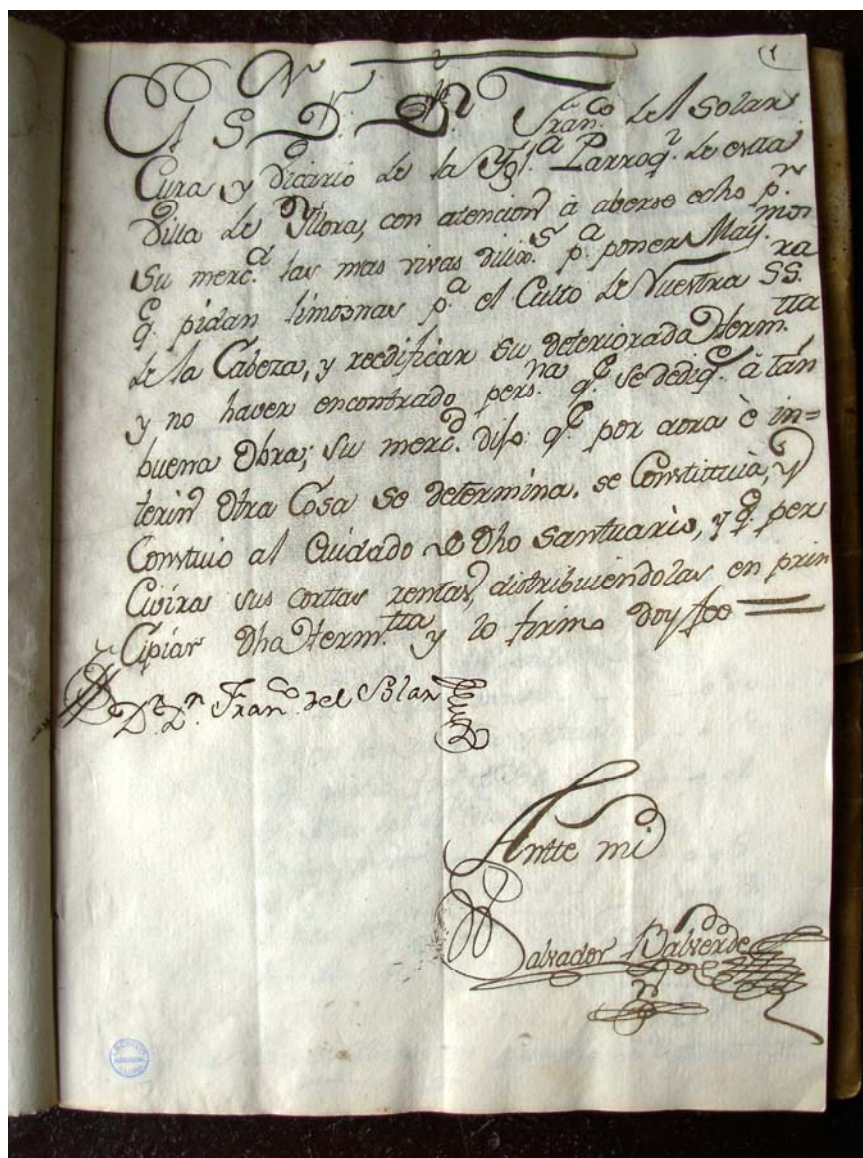 (1
El S.r D.r D.n Fran.co del Solar
Cura y Vicario de la Ygl.a Parroq.l de esta
Villa de Yllora, con atencion à aberse echo p.r
Su merc.d las mas vivas dilix.s p.a poner May.mos
q.e pidan limosnas p.a el Culto de Nuestra SS.ra
de la Cabeza, y reedificar su deteriorada Herm.tta
y no haver encontrado pers.na q.e se dediq.e à tan
buena Obra; su merc.d dijo: q.e por aora è in=
terin Otra Cosa se determina. se Constituia, y
Constituio al Cuidado de Dho Santuario, y q.e per
Civira sus corttas rentas, distribuiendolas en prin
Cipiar dha Herm.tta y lo firmo doy fee =
D.r D.n Fran.co del Solar
Antte mi
Salvador Balverde